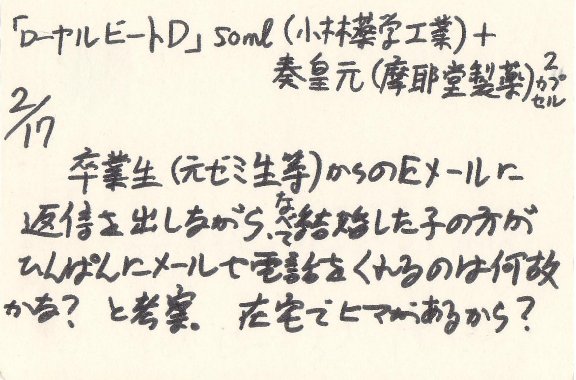 「ローヤルビートD」50ml(小林薬学工業)+
秦皇元(摩耶堂製薬)2カプセル
2/17
卒業生(元ゼミ生等)からのEメールに
返信を出しながら、なべて結婚した子の方が
ひんぱんにメールや電話をくれるのは何故
かな? と考察。 在宅でヒマがあるから?